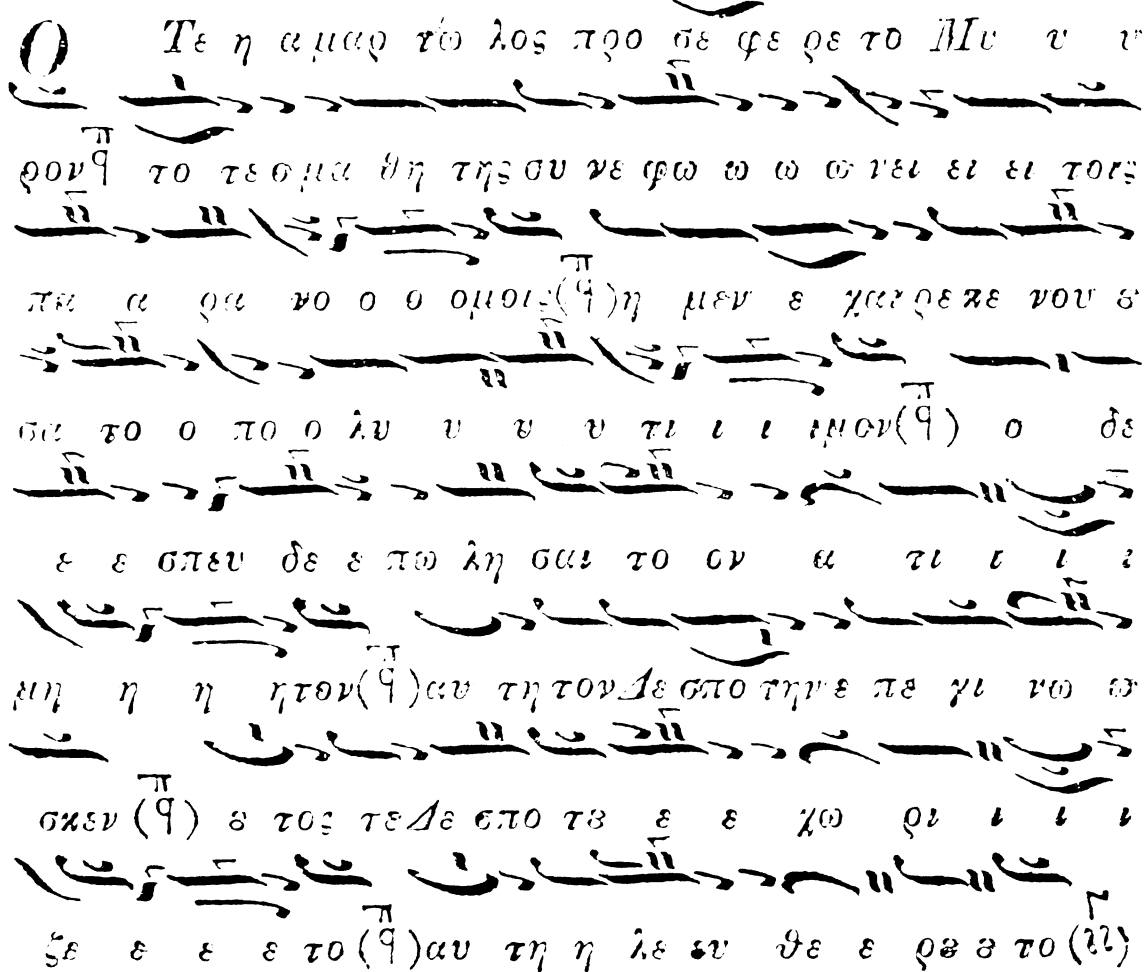 Ὅ Τε η αμαρ τώ λος προ σε φε ρε το Μυ υ υ
ρον π q το τε ο μα θη της συ νε φω ω ω ω νει ει ει τοις
πα α ρα νο ο ο ομοις (π q) η μεν ε χαι ρε κε νου ȣ
σα το ο πο ο λυ υ υ υ τι ι ι ιμον (π q) ο δε
ε ε σπευ δε ε πω λη σαι το ον α τι ι ι ι
μη η η ητον (π q) αυ τη τον Δε σπο την ε πε γι νω ω
σκεν (π q) ȣ τος τε Δε σπο τȣ ε ε χω ρι ι ι ι
ζε ε ε ε το (π q) αυ τη η λε ευ θε ε ρȣ ȣ το